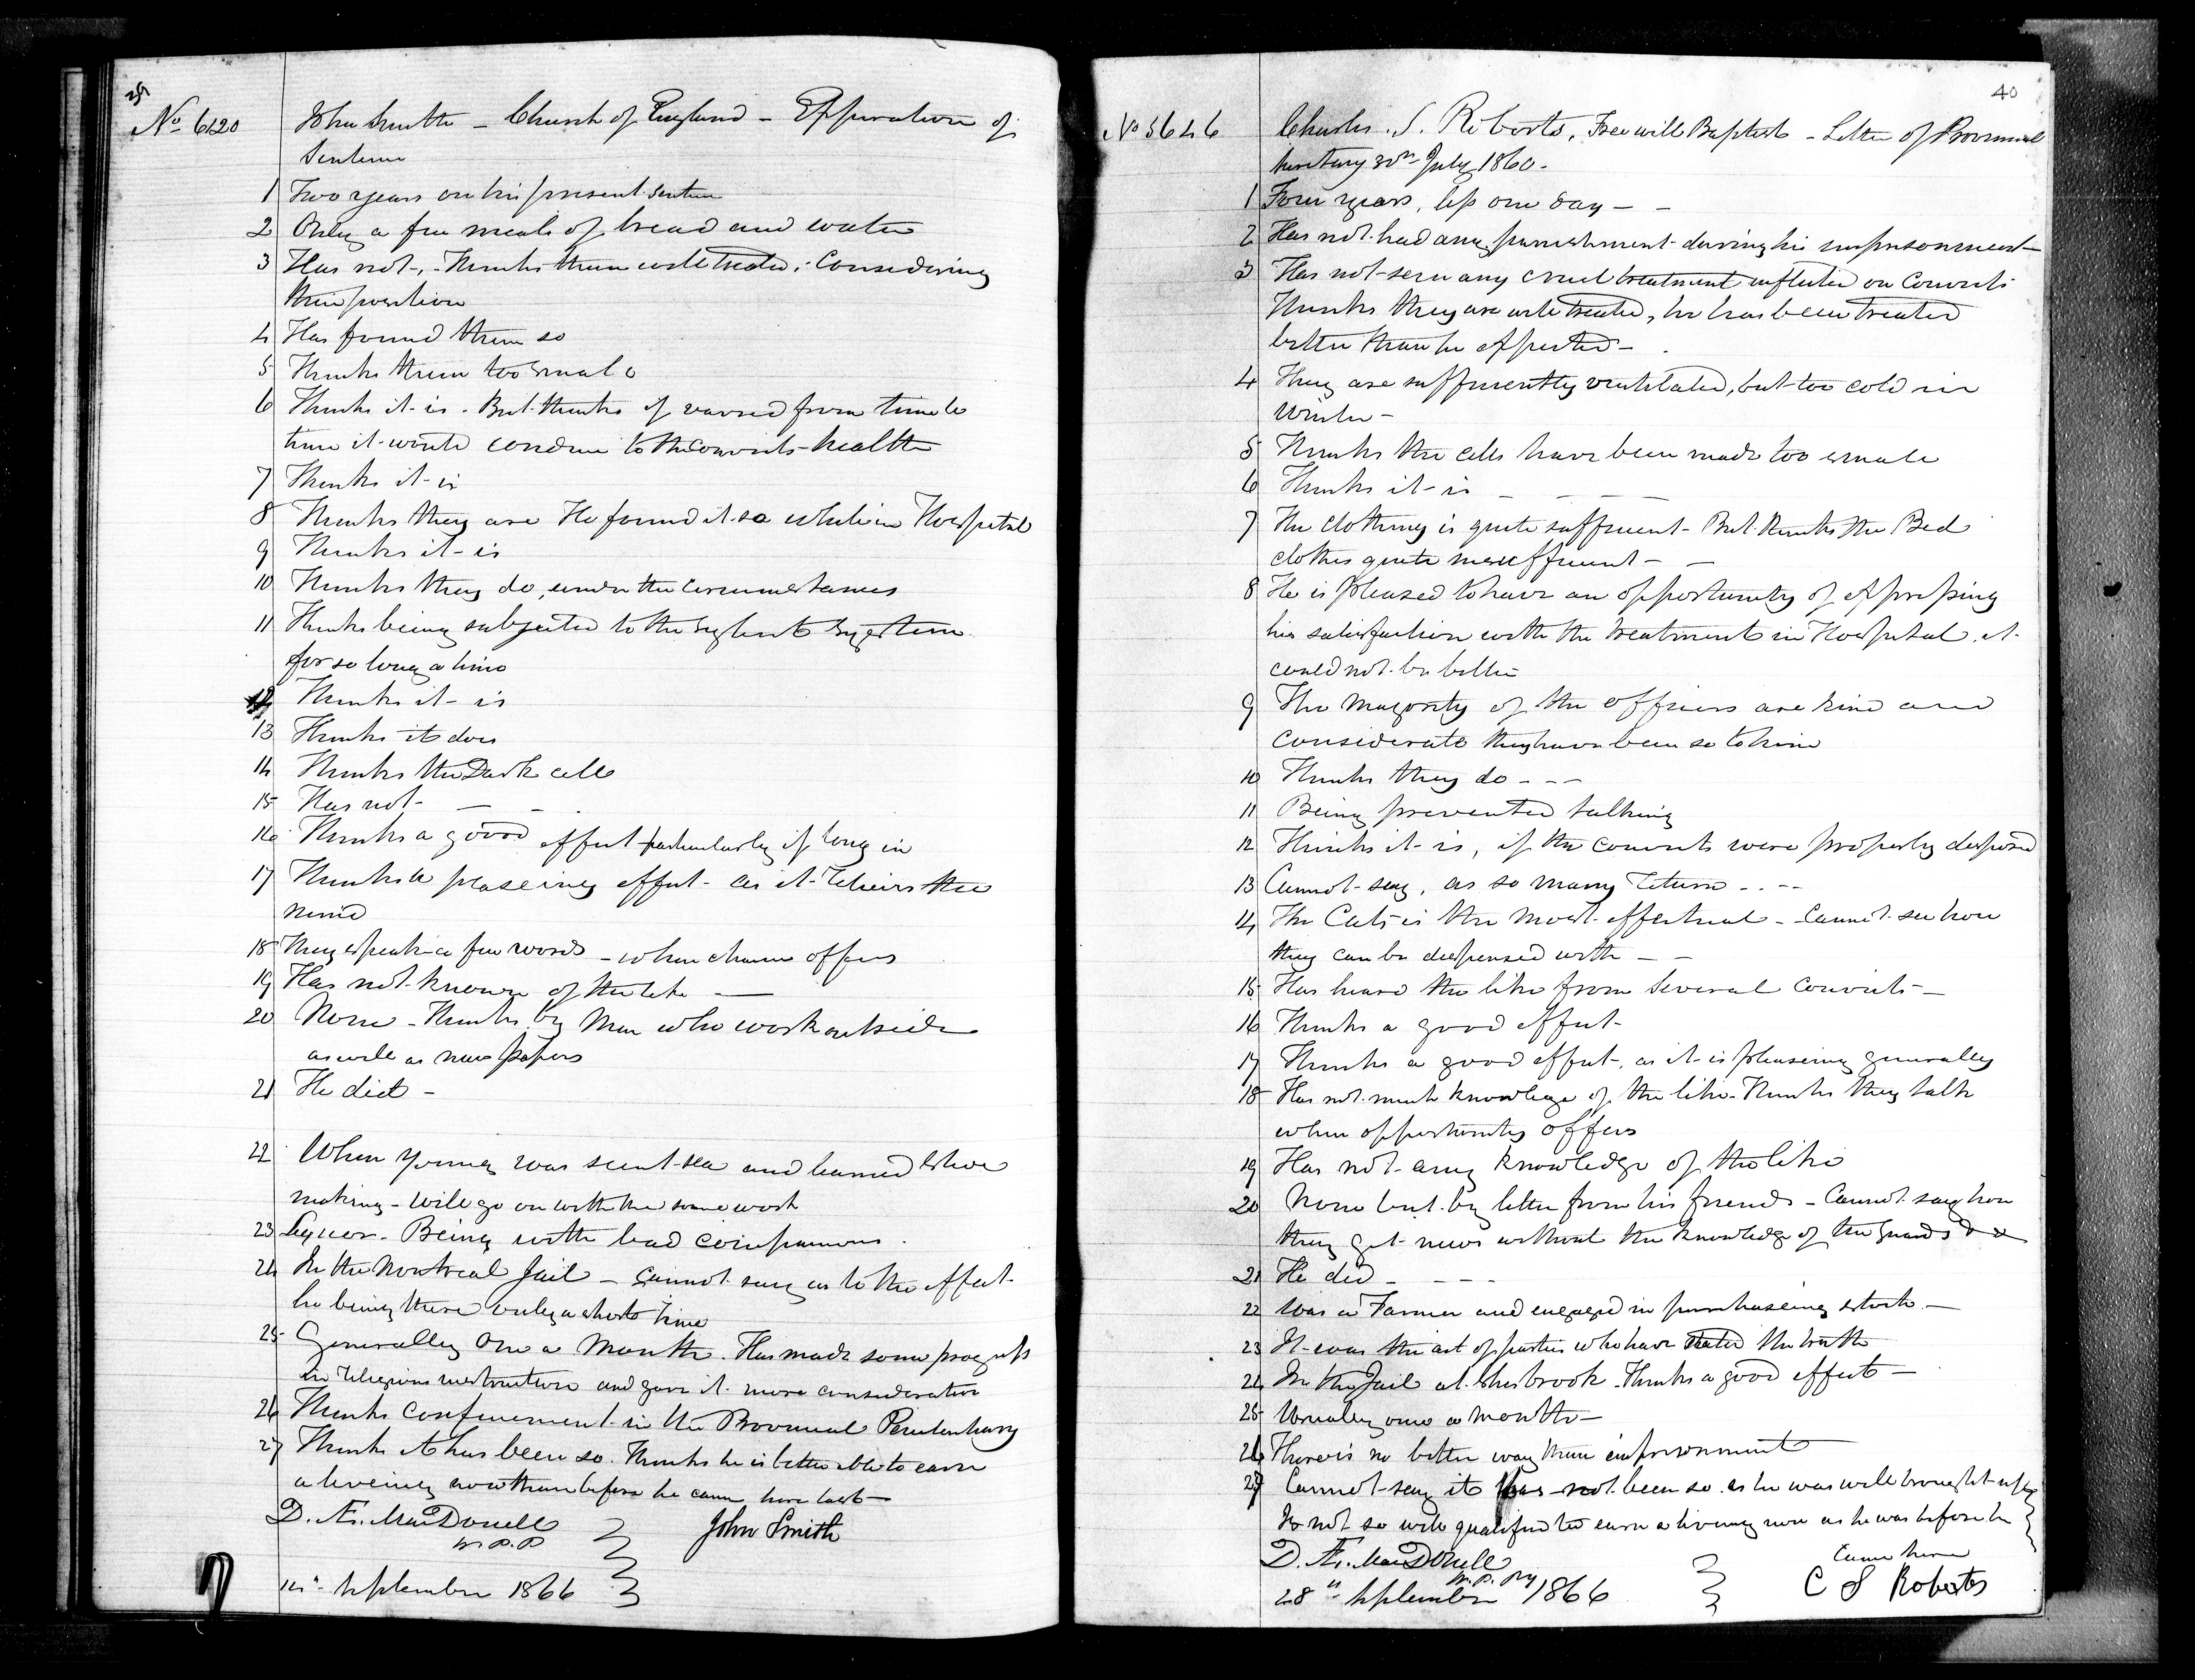 39
No 6120 John Smith - Church of England - Expiration of
Sentence
1 Two years on his present sentence
2 Only a few meals of bread and water
3 Has not, - Thinks them well treated, Considering
their position
4 Has found them so
5 Thinks them too small
6 Thinks it is. But thinks if varied from time to
time it would conduce to the convicts health
7 Thinks it is
8 Thinks they are He found it so while in Hospital
9 Thinks it is
10 Thinks they do, under the circumstances
11 Thinks being subjected to the Sylent System
for so long a time
12 Thinks it is
13 Thinks it does
14 Thinks the Dark cell
15 Has not -
16 Thinks a good effect particularly if long in
17 Thinks a pleaseing effect - as it relieves the
mind
18 They speak a few words - when chance offers
19 Has not known of the like -
20 None - Thinks by Men who work outside
as well as news papers
21 He did -
22 When young was sent sea and learned Shoe
making - will go on with the same work
23 Lyquor - Being with bad companions.
24 In the Montreal Jail - Cannot say as to the effect
he being there only a short time
25 Generally One a Month. Has made some progress
in religious instruction and gave it more consideration
26 Thinks confinement in the Provincial Penitentiary
27 Thinks it has been so. Thinks he is better able to earn
a liveing now than before he came here last -
D. Æ. MacDonell
W P. P
John Smith
14th September 1866
40
No 5646 Charles. S. Roberts, Free will Baptist - Letter of Provincial
Secretary 30th July 1860 -
1 Four years, less one day - -
2 Has not had any punishment during his imprisonment
3 Has not seen any cruel treatment inflicted on Convicts
Thinks they are well treated, he has been treated
better than he expected -
4 They are sufficiently ventilated, but too cold in
Winter -
5 Thinks the cells have been made too small
6 Thinks it is - - - -
7 The clothing is quite sufficient - But thinks the Bed
clothes quite insufficient - -
8 He is pleased to have an opportunity of expressing
his satisfaction with the treatment in Hospital, it
could not be better
9 The Majority of the officers are kind and
considerate they have been so to him
10 Thinks they do - - -
11 Being prevented talking
12 Thinks it is, if the convicts were properly disposed
13 Cannot say, as so many return - - - -
14 The Cats is the most effectual - Cannot see how
they can be dispensed with - -
15 Has heard the like from several convicts -
16 Thinks a good effect -
17 Thinks a good effect, as it is pleaseing generally
18 Has not much knowledge of the like - Thinks they talk
when opportunity offers
19 Has not any knowledge of the like
20 None but by letter from his friends - Cannot say how
they get news without the knowledge of the Guards & &
21 He did - - - -
22 Was a Farmer and engaged in purchaseing stock -
23 It was the act of parties who have stated the truth
24 In the Jail at Sherbrook - Thinks a good effect -
25 Usually once a month -
26 There is no better way than imprisonment
27 Cannot say it has not been so. as he was well brought up
Is not so well qualified to earn a liveing now as he was before he
came here
D. Æ. MacDonell
W. P. Py
28th September 1866
C S Roberts